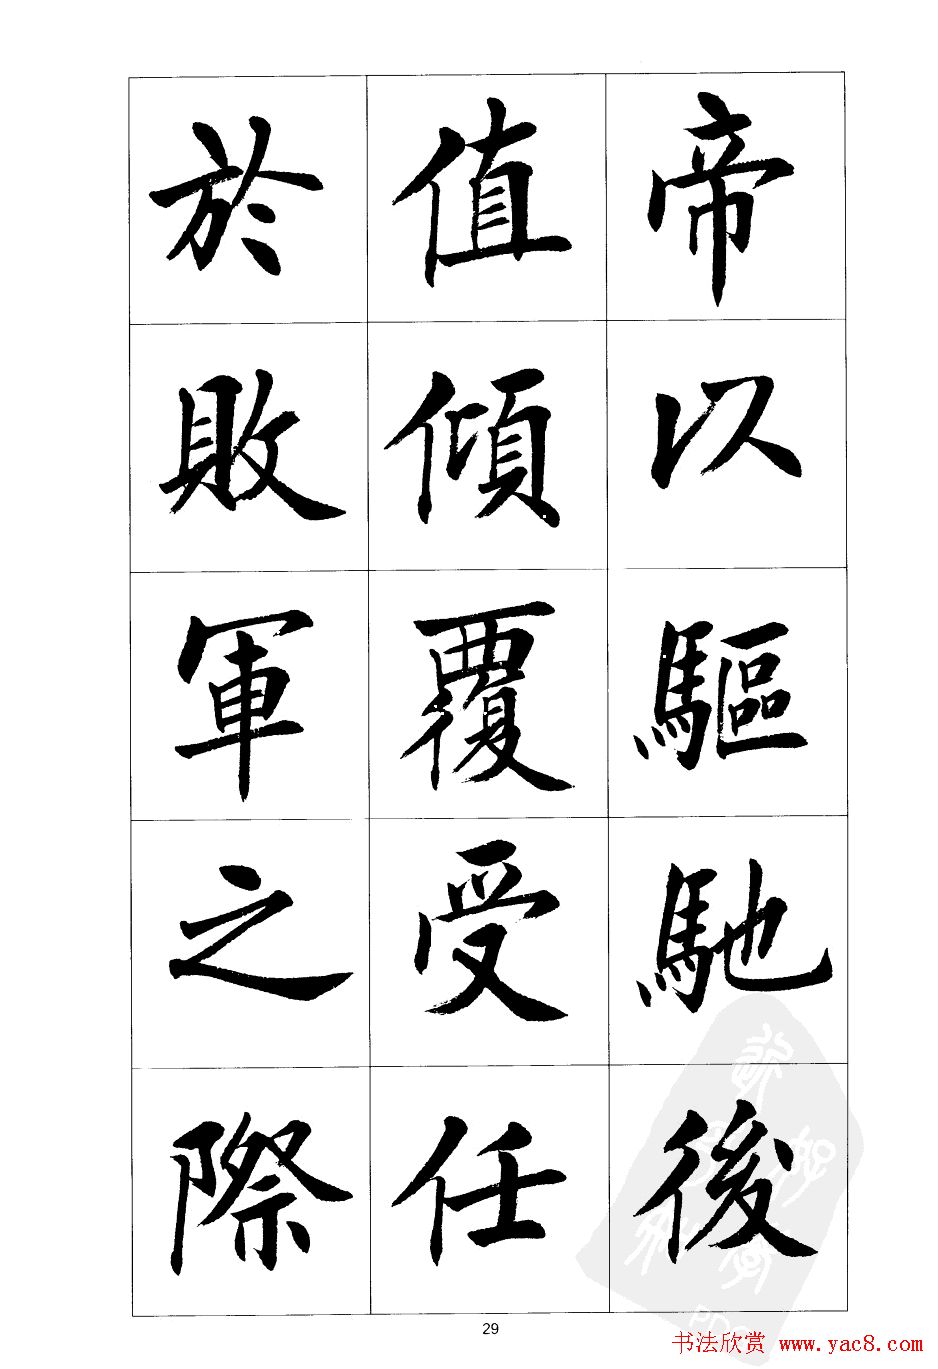 帝以驅馳後
值傾覆受任
於敗軍之際
29
书法欣赏 www.yac8.com